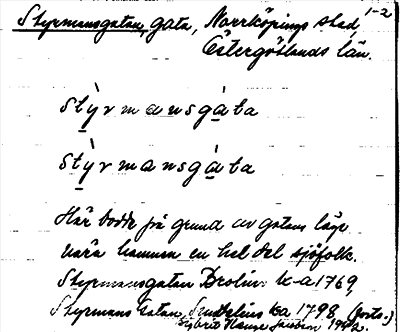 Styrmansgatan, gata, Norrköpings stad, 1-2
Östergötlands län.
stỳrmansgàta
stỳrmansgàta
Här bodde på grund av gatans läge
nära hamnen en hel del sjöfolk.
Styrmansgatan Brolin ka 1769
Styrmans Gatan Sundelius ka 1798 (forts.)
Sigbrit Hange Jansson 1982.